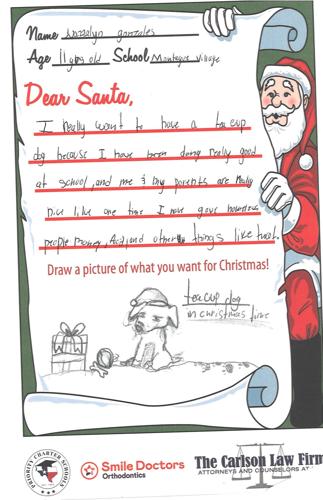 Name gonzales
Age 11 yrs old School Montague Village
Dear Santa,
I really want to have a tea cup
dog because I have been doing really good
at school, and me & my parents are really
nice like one time I have gave homeless
people money, And other things like that.
Draw a picture of what you want for Christmas!
teacup dog
in christmas time
PRIORITY CHARTER SCHOOLS
Smile Doctors
Orthodontics
The Carlson Law Firm
ATTORNEYS AND COUNSELORS AT